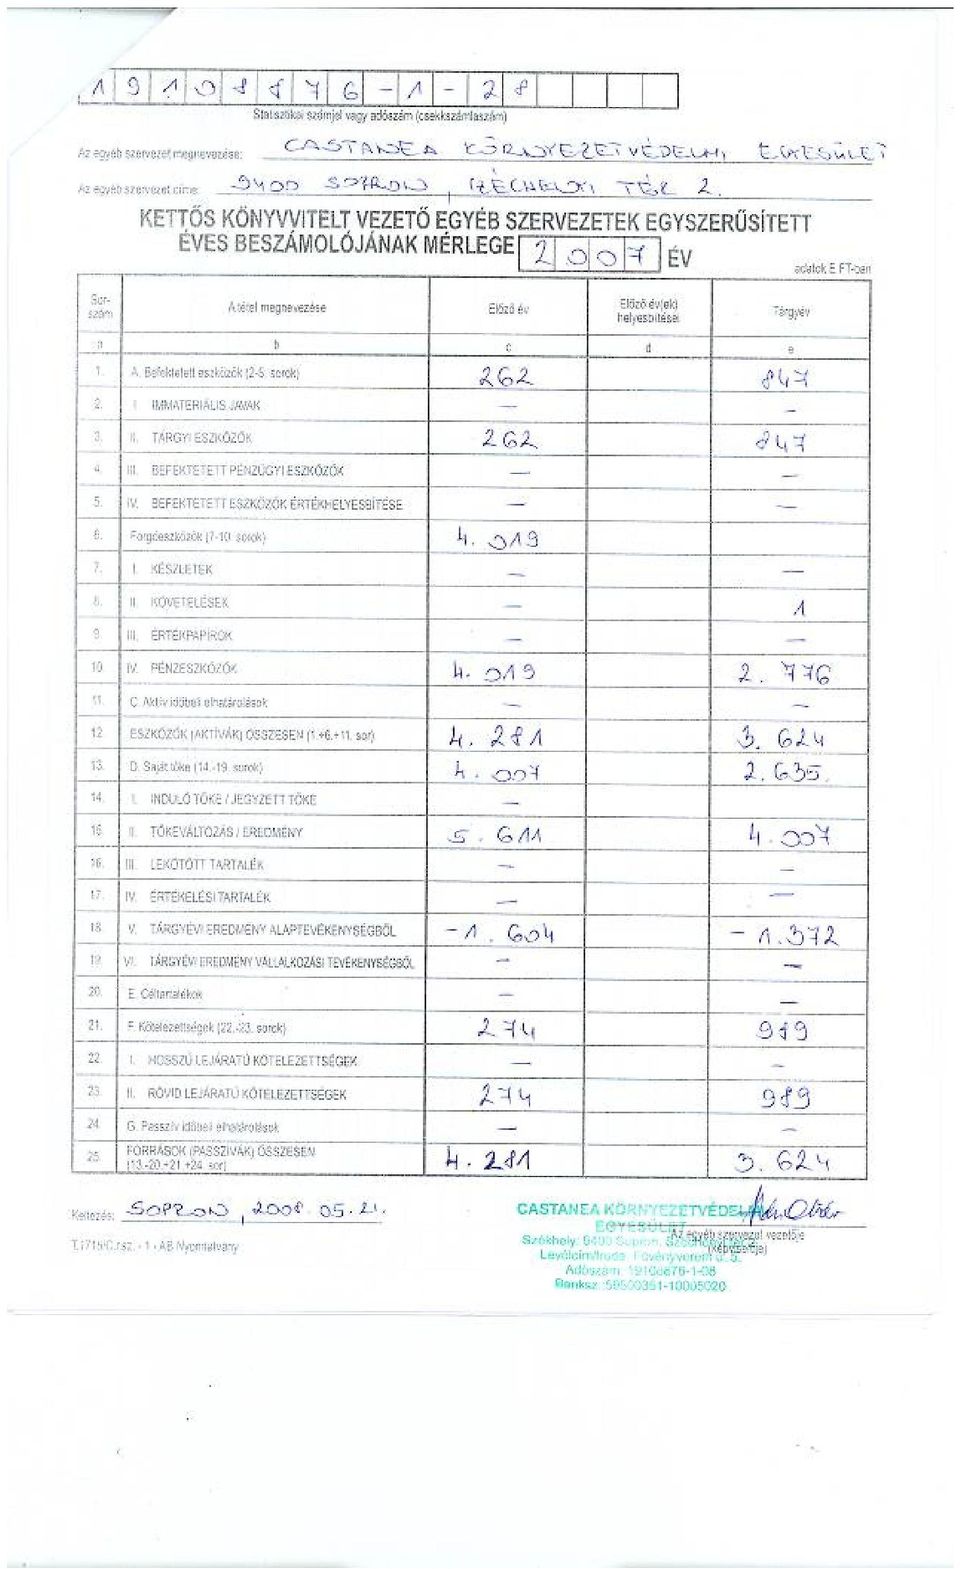 19108876-1-28
Statisztikai számjel vagy adószám (csekkszámlaszám)
Az egyéb szervezet megnevezése: CASTANEA KÖRNYEZETVÉDELMI EGYESÜLET
Az egyéb szervezet címe: 9400 SOPRON, TÉR 2.
KETTŐS KÖNYVVITELT VEZETŐ EGYÉB SZERVEZETEK EGYSZERŰSÍTETT
ÉVES BESZÁMOLÓJÁNAK MÉRLEGE 2007 ÉV
adatok E FT-ban
Sor-szám A tétel megnevezése Előző év Előző év(ek) helyesbítései Tárgyév
a b c d e
1. A. Befektetett eszközök (2-5. sorok) 262 847
2. I. IMMATERIÁLIS JAVAK — —
3. II. TÁRGYI ESZKÖZÖK 262 847
4. III. BEFEKTETETT PÉNZÜGYI ESZKÖZÖK — —
5. IV. BEFEKTETETT ESZKÖZÖK ÉRTÉKHELYESBÍTÉSE — —
6. Forgóeszközök (7-10. sorok) 4.019
7. I. KÉSZLETEK — —
8. II. KÖVETELÉSEK — 1
9. III. ÉRTÉKPAPÍROK — —
10. IV. PÉNZESZKÖZÖK 4.019 2.776
11. C. Aktív időbeli elhatárolások — —
12. ESZKÖZÖK (AKTÍVÁK) ÖSSZESEN (1.+6.+11. sor) 4.281 3.624
13. D. Saját tőke (14.-19. sorok) 4.007 2.635.
14. I. INDULÓ TŐKE / JEGYZETT TŐKE —
15. II. TŐKEVÁLTOZÁS / EREDMÉNY 5.611 4.007
16. III. LEKÖTÖTT TARTALÉK — —
17. IV. ÉRTÉKELÉSI TARTALÉK — —
18. V. TÁRGYÉVI EREDMÉNY ALAPTEVÉKENYSÉGBŐL -1.604 -1.372
19. VI. TÁRGYÉVI EREDMÉNY VÁLLALKOZÁSI TEVÉKENYSÉGBŐL — —
20. E. Céltartalékok — —
21. F. Kötelezettségek (22.-23. sorok) 274 989
22. I. HOSSZÚ LEJÁRATÚ KÖTELEZETTSÉGEK — —
23. II. RÖVID LEJÁRATÚ KÖTELEZETTSÉGEK 274 989
24. G. Passzív időbeli elhatárolások — —
25. FORRÁSOK (PASSZIVÁK) ÖSSZESEN (13.-20.+21.+24. sor) 4.281 3.624
Keltezés: SOPRON, 2008. 05. 21.
CASTANEA KÖRNYEZETVÉDELMI
EGYESÜLET
Az egyéb szervezet vezetője
(képviselője)
Székhely: 9400 Sopron, Széchenyi tér 2.
Levélcím/Iroda: Fövényverem u. 5.
Adószám: 19108876-1-08
Banksz.: 59500351-10005020
T.1715/C.r.sz. - 1 - AB Nyomtatvány